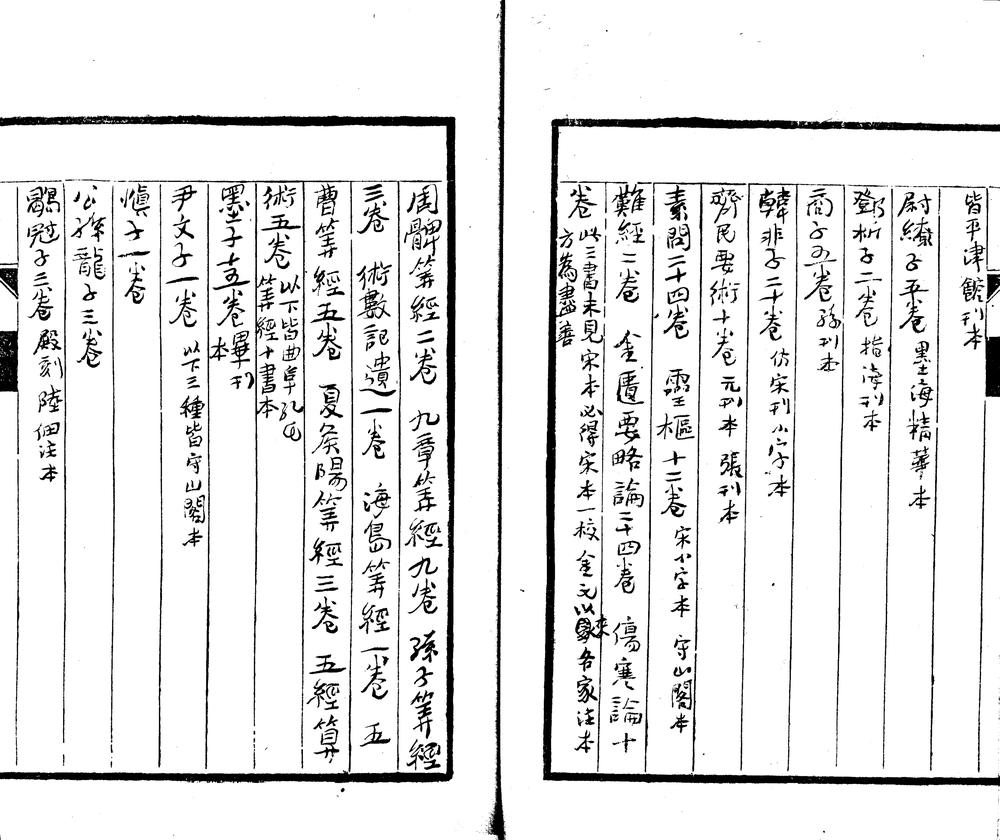 皆平津館刊本
尉繚子五卷 墨海精華本
鄧析子二卷 指海刊本
商子五卷 孫刊本
韓非子二十卷 仿宋刊小字本
齊民要術十卷 元刊本 張刊本
素問二十四卷 靈樞十二卷 宋小字本 守山閣本
難經二卷 金匱要略論二十四卷 傷寒論十
卷 此三書未見宋本必得宋本一校金元以來各家注本
方為盡善
周髀筭經二卷 九章筭經九卷 孫子筭經
三卷 術數記遺一卷 海島筭經一卷 五
曹筭經五卷 夏侯陽筭經三卷 五經算
術五卷 以下皆曲阜孔氏
筭經十書本
墨子十五卷 畢刊
本
尹文子一卷 以下三種皆守山閣本
慎子一卷
公孫龍子三卷
鶡冠子三卷 殿刻陸佃注本